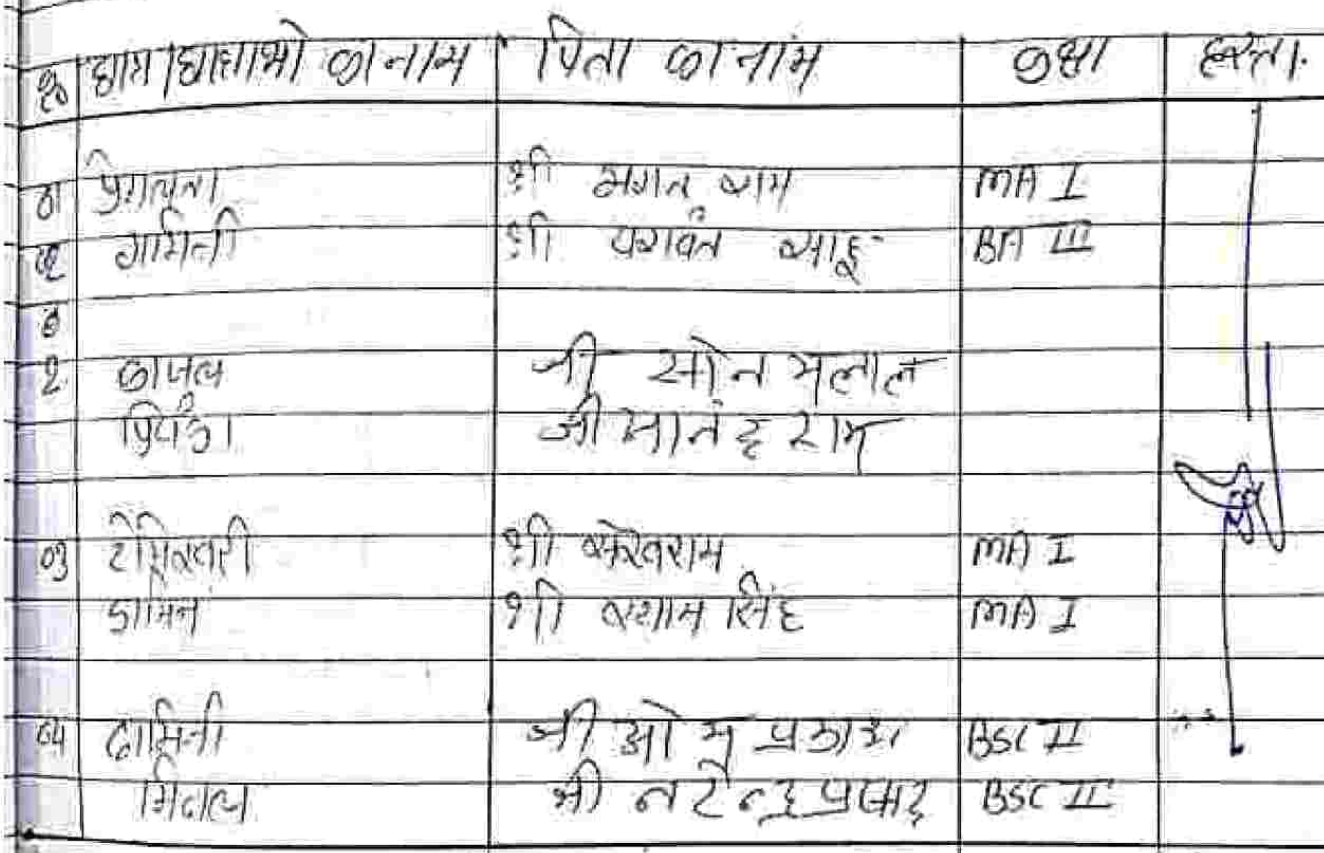 क्र छात्र/छात्राओं का नाम पिता का नाम कक्षा हस्ता.
01 श्री भगत राम MA I
02 गामिनी श्री यशवंत साहू BA III
2 काजल श्री सोनमलाल
प्रियंका श्री मानंद राम
03 टोमेश्वरी श्री सेवराम MA I
श्री श्याम सिंह MA I
04 दामिनी श्री ओम प्रकाश BSC II
श्री नरेन्द्र प्रसाद BSC II